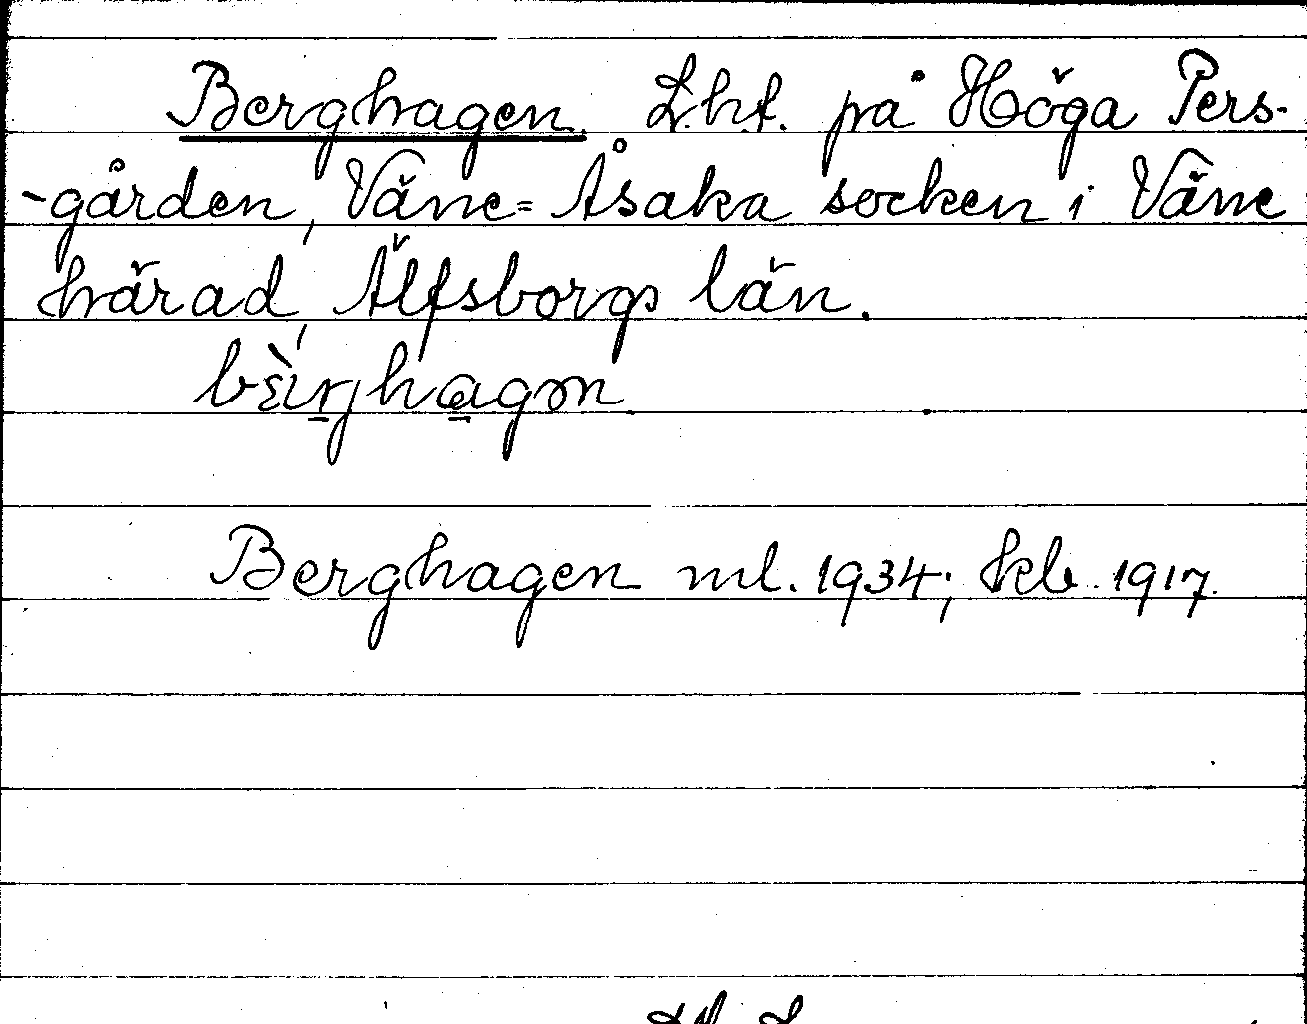 Berghagen. L.h.t. på Höga Pers-
-gården, Väne-Åsaka socken i Väne
härad, Älfsborgs län.
Berghagen ml. 1934; kb. 1917.